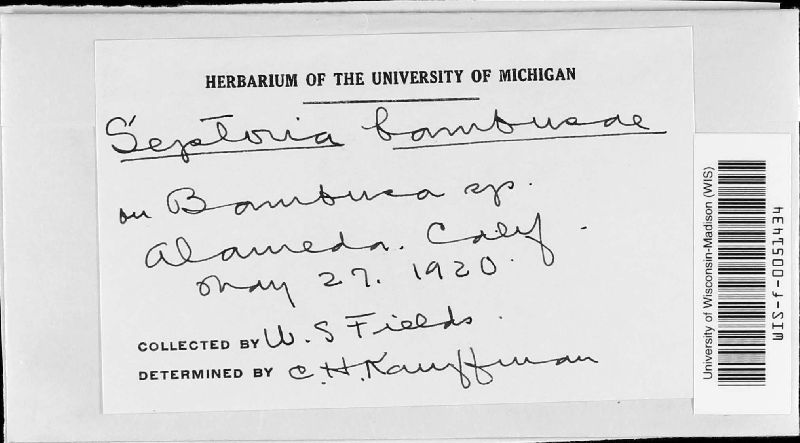 HERBARIUM OF THE UNIVERSITY OF MICHIGAN
Septoria bambusae
on Bambusa sp.
Alameda. Calif.
May 27. 1920.
COLLECTED BY W. S Fields.
DETERMINED BY C.H. Kauffman
University of Wisconsin-Madison (WIS)
WIS-f-0051434